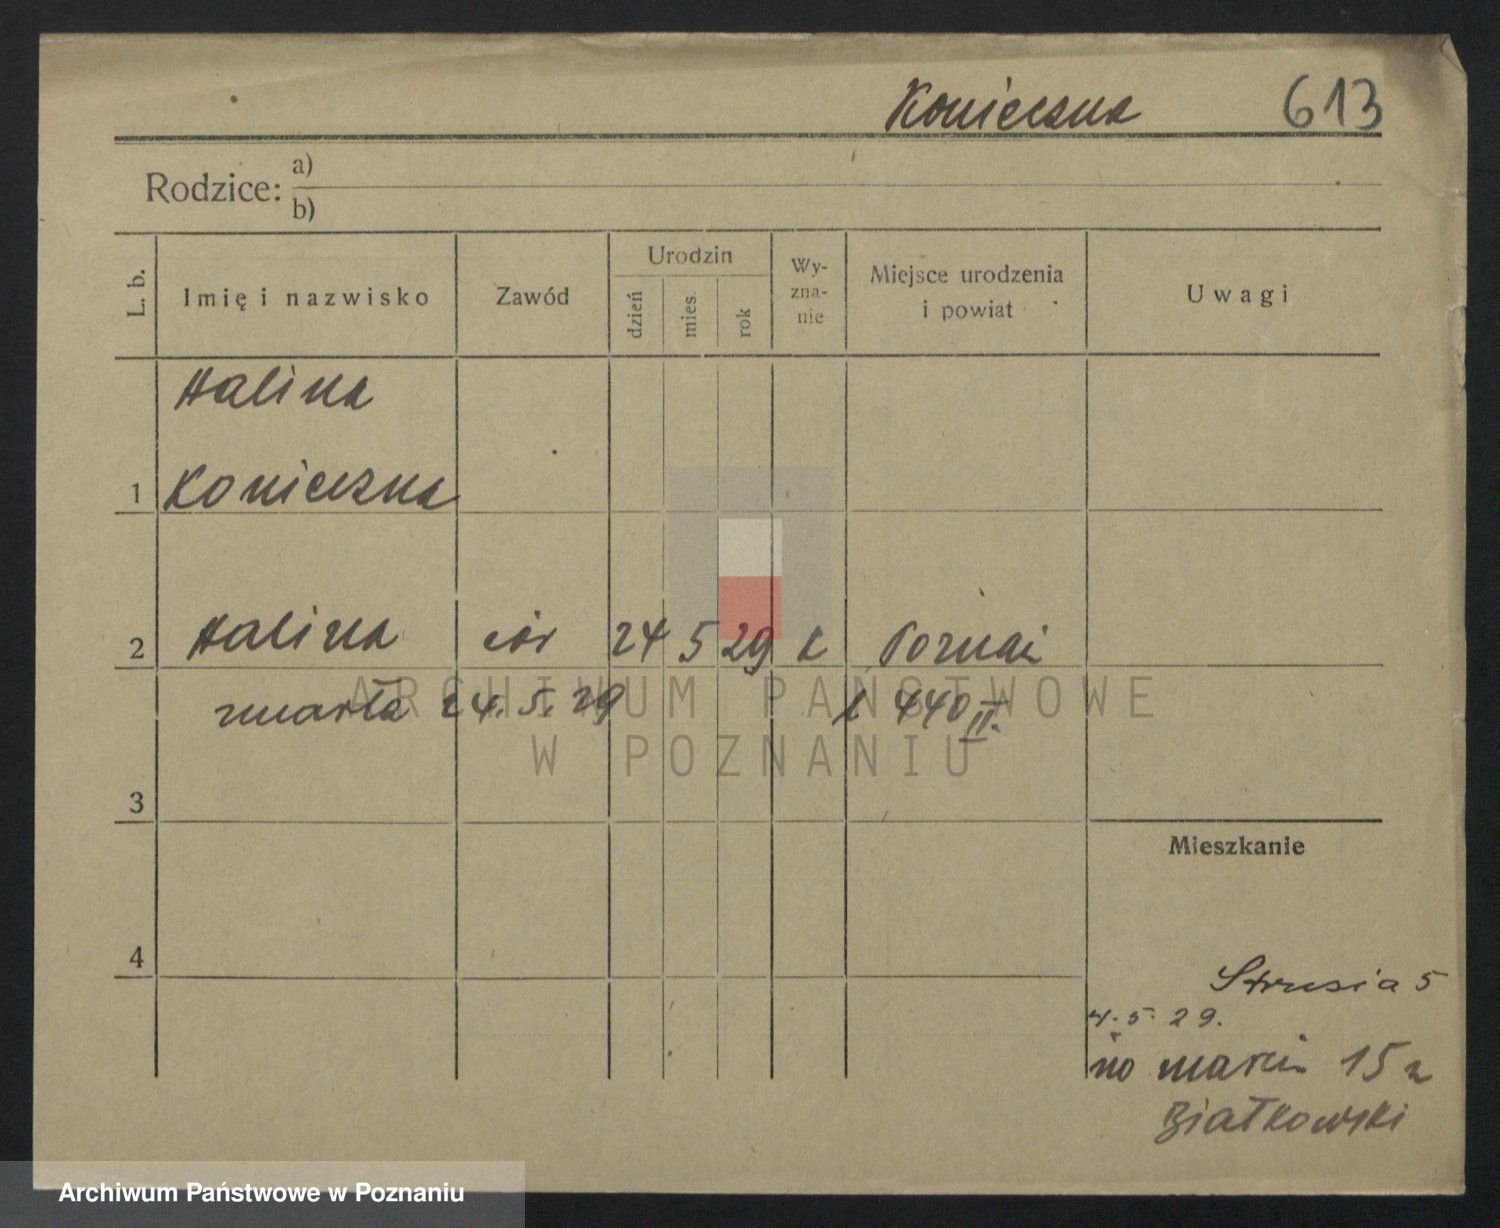 Konieczna 613
Rodzice: a)
b)
L. b. Imię i nazwisko Zawód Urodzin dzień mies. rok Wy-zna-nie Miejsce urodzenia i powiat Uwagi
Halina
1 Konieczna
2 Halina cór 24 5 29 k Poznań
zmarła 24. 5. 29 k 440 II.
ARCHIWUM PAŃSTWOWE
W POZNANIU
3
Mieszkanie
4
Strusia 5
4. 5. 29.
Marcin 15
Białkowski
Archiwum Państwowe w Poznaniu